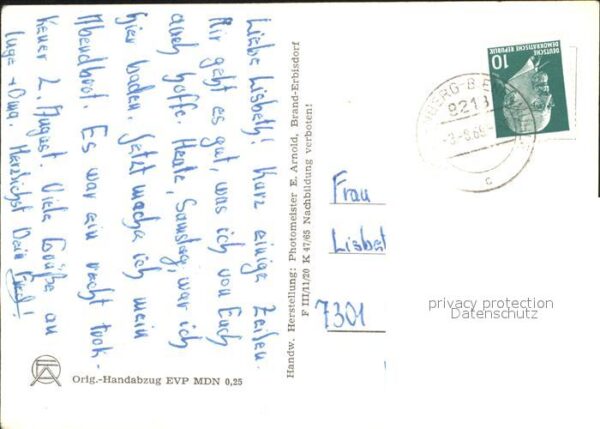 Liebe Lisbeth! Kurz einige Zeilen.
Mir geht es gut, was ich von Euch
auch hoffe. Heute, Samstag, war ich
hier baden. Jetzt mache ich mein
Abendbrot. Es war ein recht trok-
kener 2. August. Viele Grüße an
Inge + Oma. Herzlichst Dein
Handw. Herstellung: Photomeister E. Arnold, Brand-Erbisdorf
F III/11/20 K 47/65 Nachbildung verboten!
Orig.-Handabzug EVP MDN 0,25
DEUTSCHE
DEMOKRATISCHE REPUBLIK
10
9213
c
Frau
Lisbet
7301
privacy protection
Datenschutz